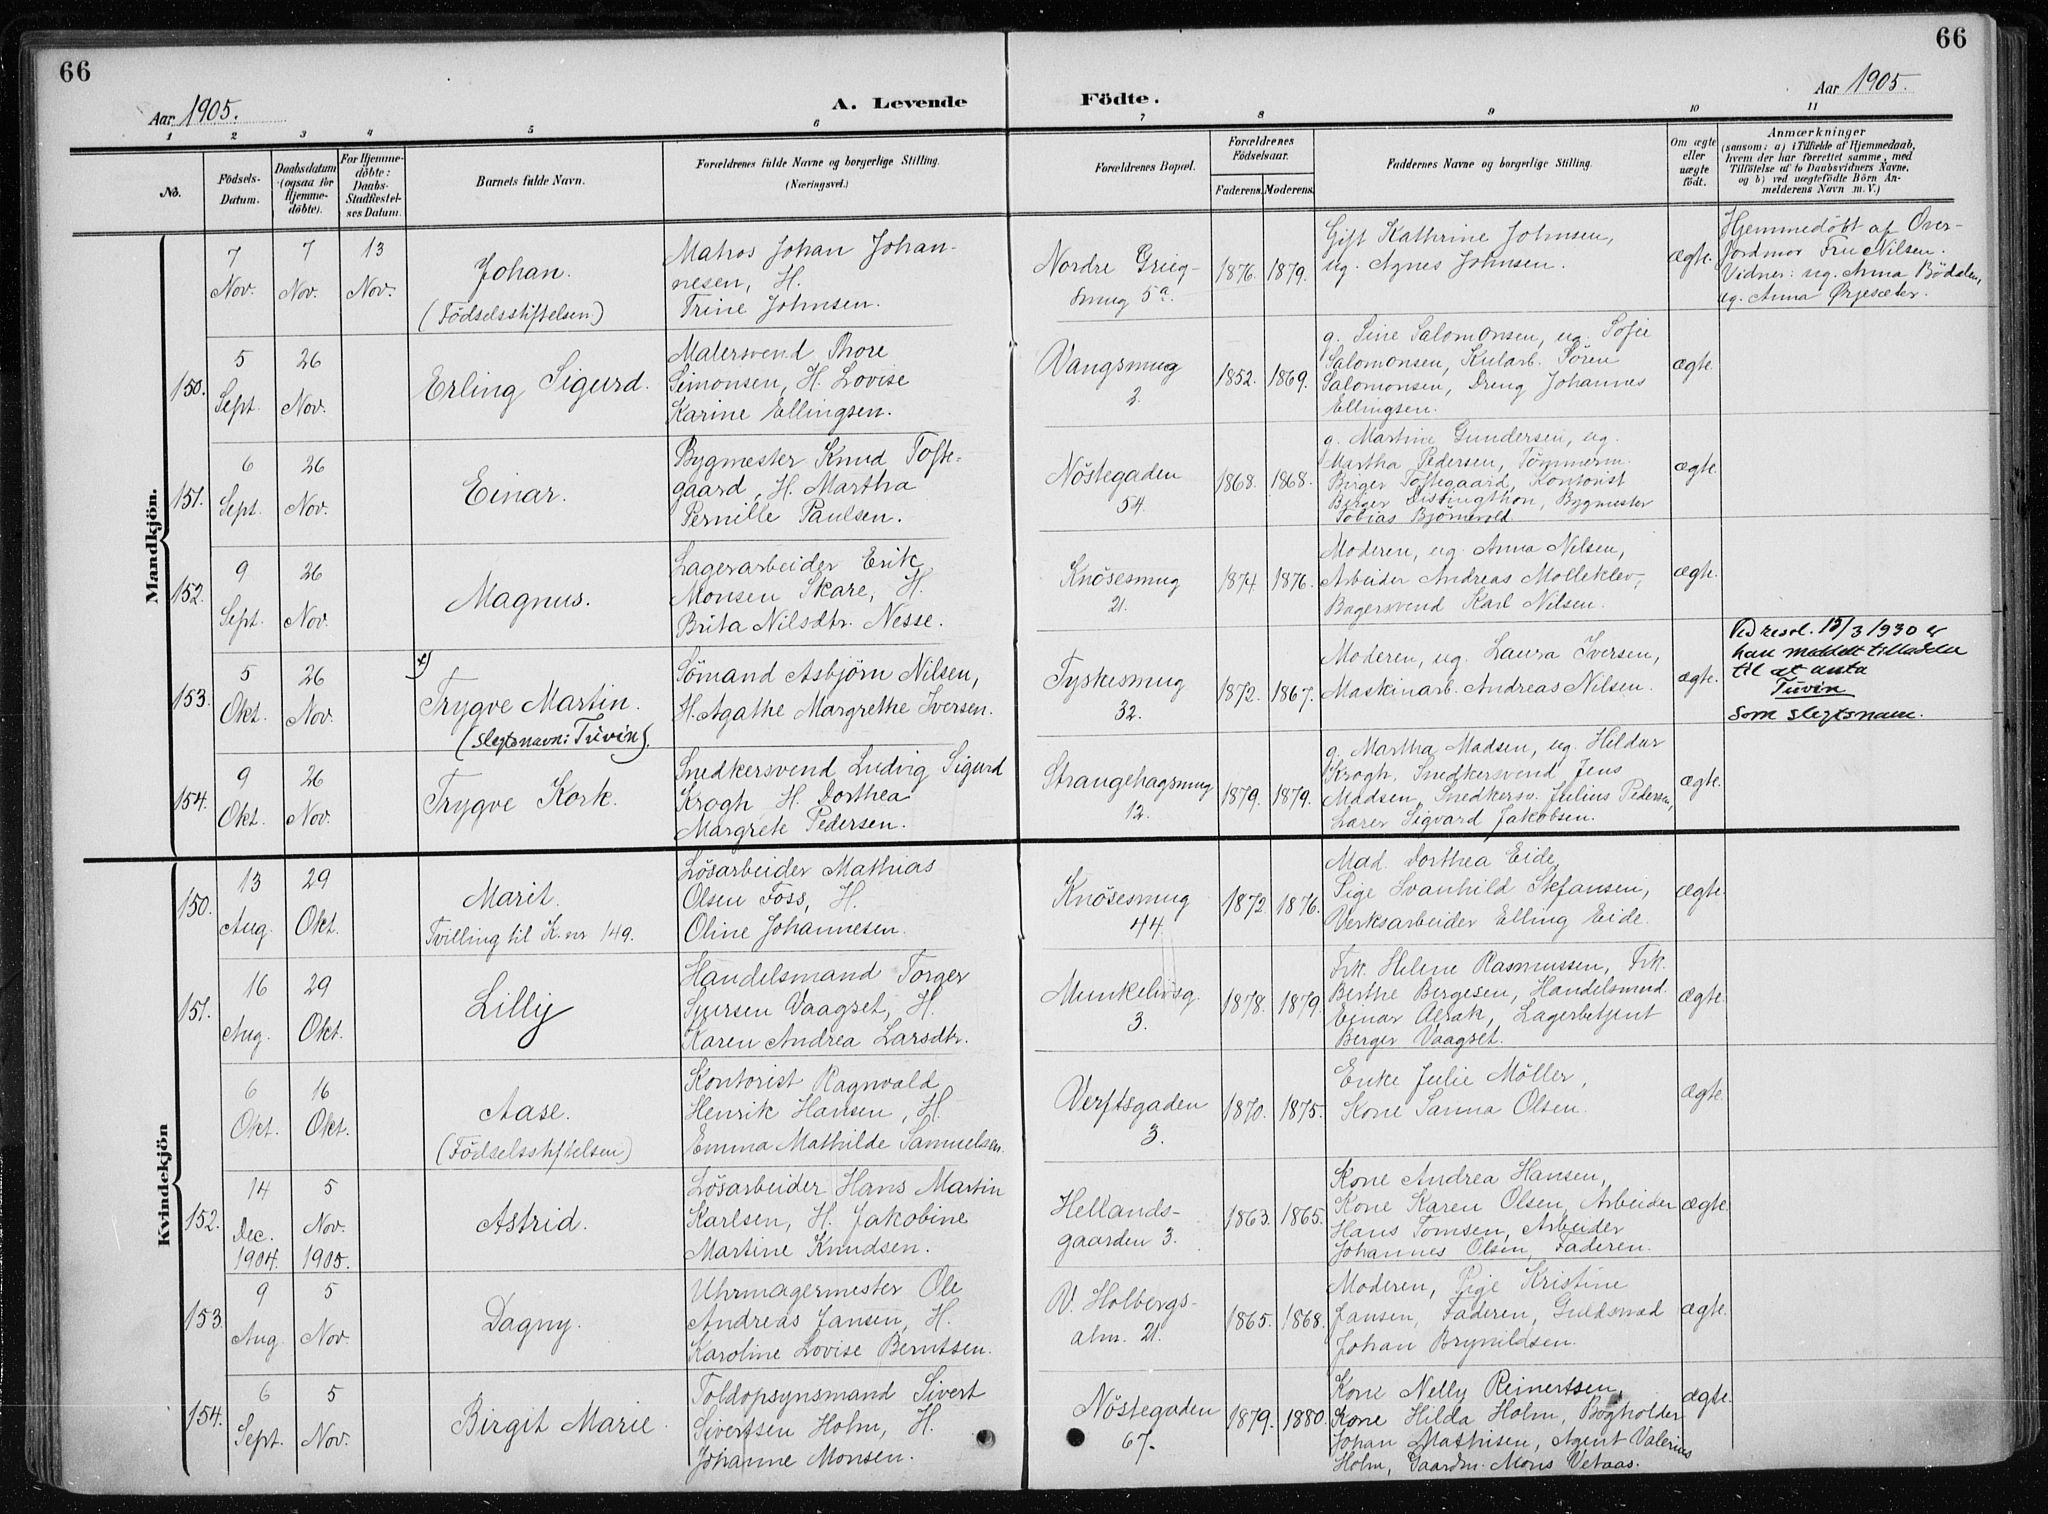 66
66
Aar 1905.
A. Levende
Födte.
Aar 1905.
1 2 3 4 5 6 7 8 9 10 11
No.
Födsels-
Datum.
Daabsdatum
(ogsaa for
Hjemme-
döbte).
For Hjemme-
döbte:
Daabs-
Stadfæstel-
ses Datum.
Barnets fulde Navn.
Forældrenes fulde Navne og borgerlige Stilling.
(Næringsvei.)
Forældrenes Bopæl.
Forældrenes
Födselsaar.
Faderens. Moderens.
Faddernes Navne og borgerlige Stilling.
Om ægte
eller
uægte
födt.
Anmærkninger
(saasom: a) i Tilfælde af Hjemmedaab,
hvem der har forrettet samme, med
Tilföielse af to Daabsvidners Navne,
og b) ved uægtefödte Börn An-
melderens Navn m. V.)
Mandkjön.
7
Nov.
7
Nov.
13
Nov.
Johan.
(Födselsstiftelsen)
Matros Johan Johan-
nesen, H.
Trine Johnsen.
Nordre Grieg-
smug 5a.
1876. 1879.
Gift Kathrine Johnsen,
ug. Agnes Johnsen.
ægte.
Hjemmedöbt af Over-
Jordmor Fru Nilsen.
Vidner: ug. Anna Bödden,
ug. Anna Ørjesæter.
150.
5
Sept.
26
Nov.
Erling Sigurd.
Malersvend Thore
Simonsen, H. Lovise
Karine Ellingsen.
Vangsmug
2.
1852. 1869.
g. Sine Salomonsen, ug. Sofie
Salomonsen, Kularb. Sören
Salomonsen, Dreng Johannes
Ellingsen.
ægte.
151.
6
Sept.
26
Nov.
Einar.
Bygmester Knud Tofte-
gaard, H. Martha
Pernille Paulsen.
Nöstegaden
54.
1868. 1868.
g. Martine Gundersen, ug.
Martha Pedersen, Tömmerm.
Birger Toftegaard, Kontorist
Birger Dissingthon, Bygmester
Tobias Björnevold.
ægte.
152.
9
Sept.
26
Nov.
Magnus.
Lagerarbeider Erik
Monsen Skare, H.
Brita Nilsdtr. Nesse.
Knösesmug
21.
1874 1876.
Moderen, ug. Anna Nilsen,
Arbeider Andreas Molleklev,
Bagersvend Karl Nilsen.
ægte.
153.
5
Okt.
26
Nov.
x)
Trygve Martin.
(slegtsnavn: Tuvin).
Sömand Asbjörn Nilsen,
H. Agathe Margrethe Iversen.
Tyskesmug
32.
1872. 1867.
Moderen, ug. Laura Iversen,
Maskinarb. Andreas Nilsen.
ægte.
Ved resol. 15/3 1930 er
han meddelt tilladelse
til at anta
Tuvin
som slegtsnam.
154.
9
Okt.
26
Nov.
Trygve Kork.
Snedkersvend Ludvig Sigurd
Krogh, H. Dorthea
Margrete Pedersen.
Strangehagsmug
12.
1879. 1879.
g. Martha Madsen, ug. Hildur
Krogh, Snedkersvend Jens
Madsen, Snedkersv. Julius Pedersen,
Lærer Sigvard Jakobsen.
ægte.
Kvindekjön
150.
13
Aug.
29
Okt.
Marit.
Tvilling til K. nr 149.
Lösarbeider Mathias
Olsen Foss, H.
Oline Johannesen.
Knösesmug
44.
1872. 1876.
Mad. Dorthea Eide,
Pige Svanhild Stefansen,
Verksarbeider Elling Eide.
ægte.
151.
16
Aug.
29
Okt.
Lilly
Handelsmand Torger
Sjursen Vaagset, H.
Karen Andrea Larsdtr.
Munkelivsg.
3.
1878. 1879.
Frk. Helene Rasmussen, Frk.
Berthe Bergesen, Handelsmd.
Einar Alræk, Lagerbetjent
Berger Vaagset.
ægte.
6
Okt.
16
Okt.
Aase.
(Födselsstiftelsen)
Kontorist Ragnvald
Henrik Hansen, H.
Emma Mathilde Samuelsen.
Verftsgaden
3.
1870. 1875.
Enke Julie Möller,
Kone Sanna Olsen.
ægte.
152.
14
Dec.
1904.
5
Nov.
1905.
Astrid.
Lösarbeider Hans Martin
Karlsen, H. Jakobine
Martine Knudsen.
Hellands-
gaarden 3.
1863. 1865.
Kone Andrea Hansen,
Kone Karen Olsen, Arbeider
Hans Tomsen, Arbeider
Johannes Olsen, Faderen.
ægte.
153.
9
Aug.
5
Nov.
Dagny.
Uhrmagermester Ole
Andreas Jansen, H.
Karoline Lovise Berntsen.
V. Holbergs-
alm. 21.
1865. 1868.
Moderen, Pige Kristine
Jansen, Faderen, Guldsmed
Johan Brynildsen.
ægte.
154.
6
Sept.
5
Nov.
Birgit Marie.
Toldopsynsmand Sivert
Sivertsen Holm, H.
Johanne Monsen.
Nöstegaden
67.
1879. 1880.
Kone Nelly Reinertsen,
Kone Hilda Holm, Bogholder
Johan Mathisen, Agent Valerius
Holm, Gaardm. Mons Vetaas.
ægte.